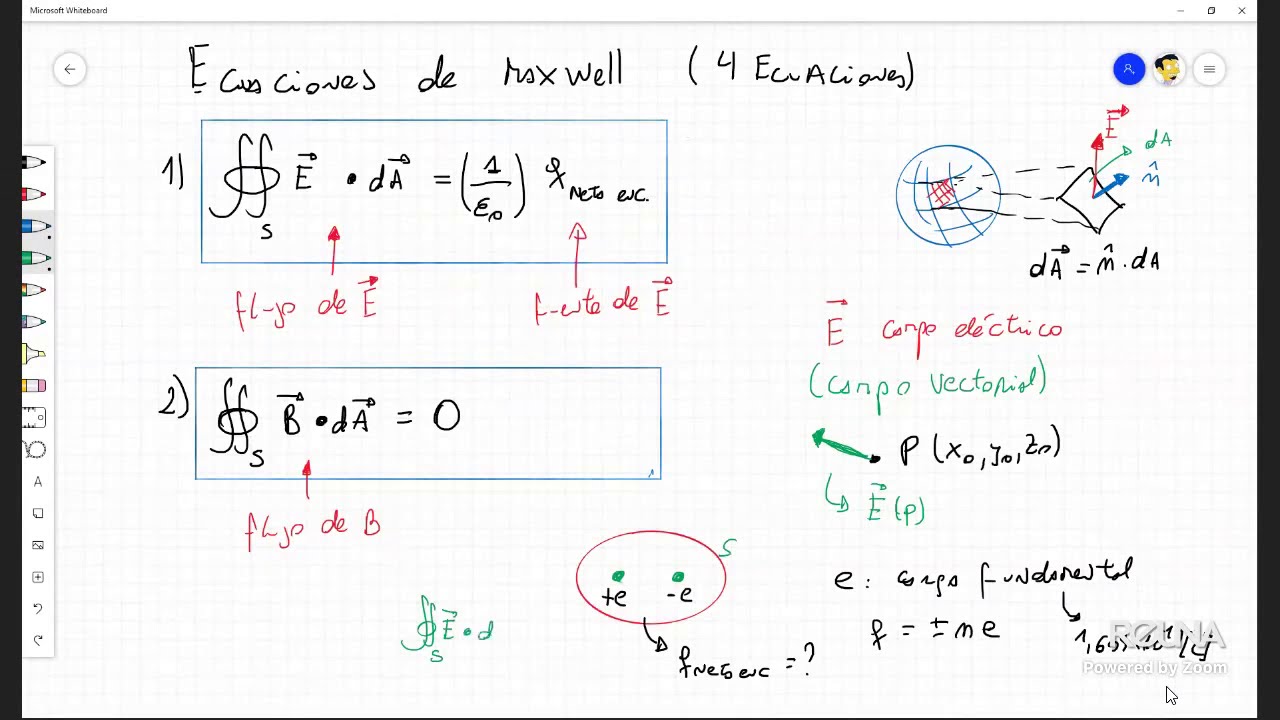 Microsoft Whiteboard
Ecuaciones de Maxwell (4 Ecuaciones)
1) ∯ₛ E⃗ • dA⃗ = (1/ε₀) q neto enc.
flujo de E⃗
fuente de E⃗
E⃗
dA
n̂
dA⃗ = n̂ . dA
E⃗ campo eléctrico
(campo vectorial)
P (x₀, y₀, z₀)
E⃗(p)
2) ∯ₛ B⃗ • dA⃗ = 0
flujo de B
S
+e -e
q neto enc = ?
∯ₛ E⃗ • d
e: carga fundamental
q = ± n e
REUNA
Powered by Zoom